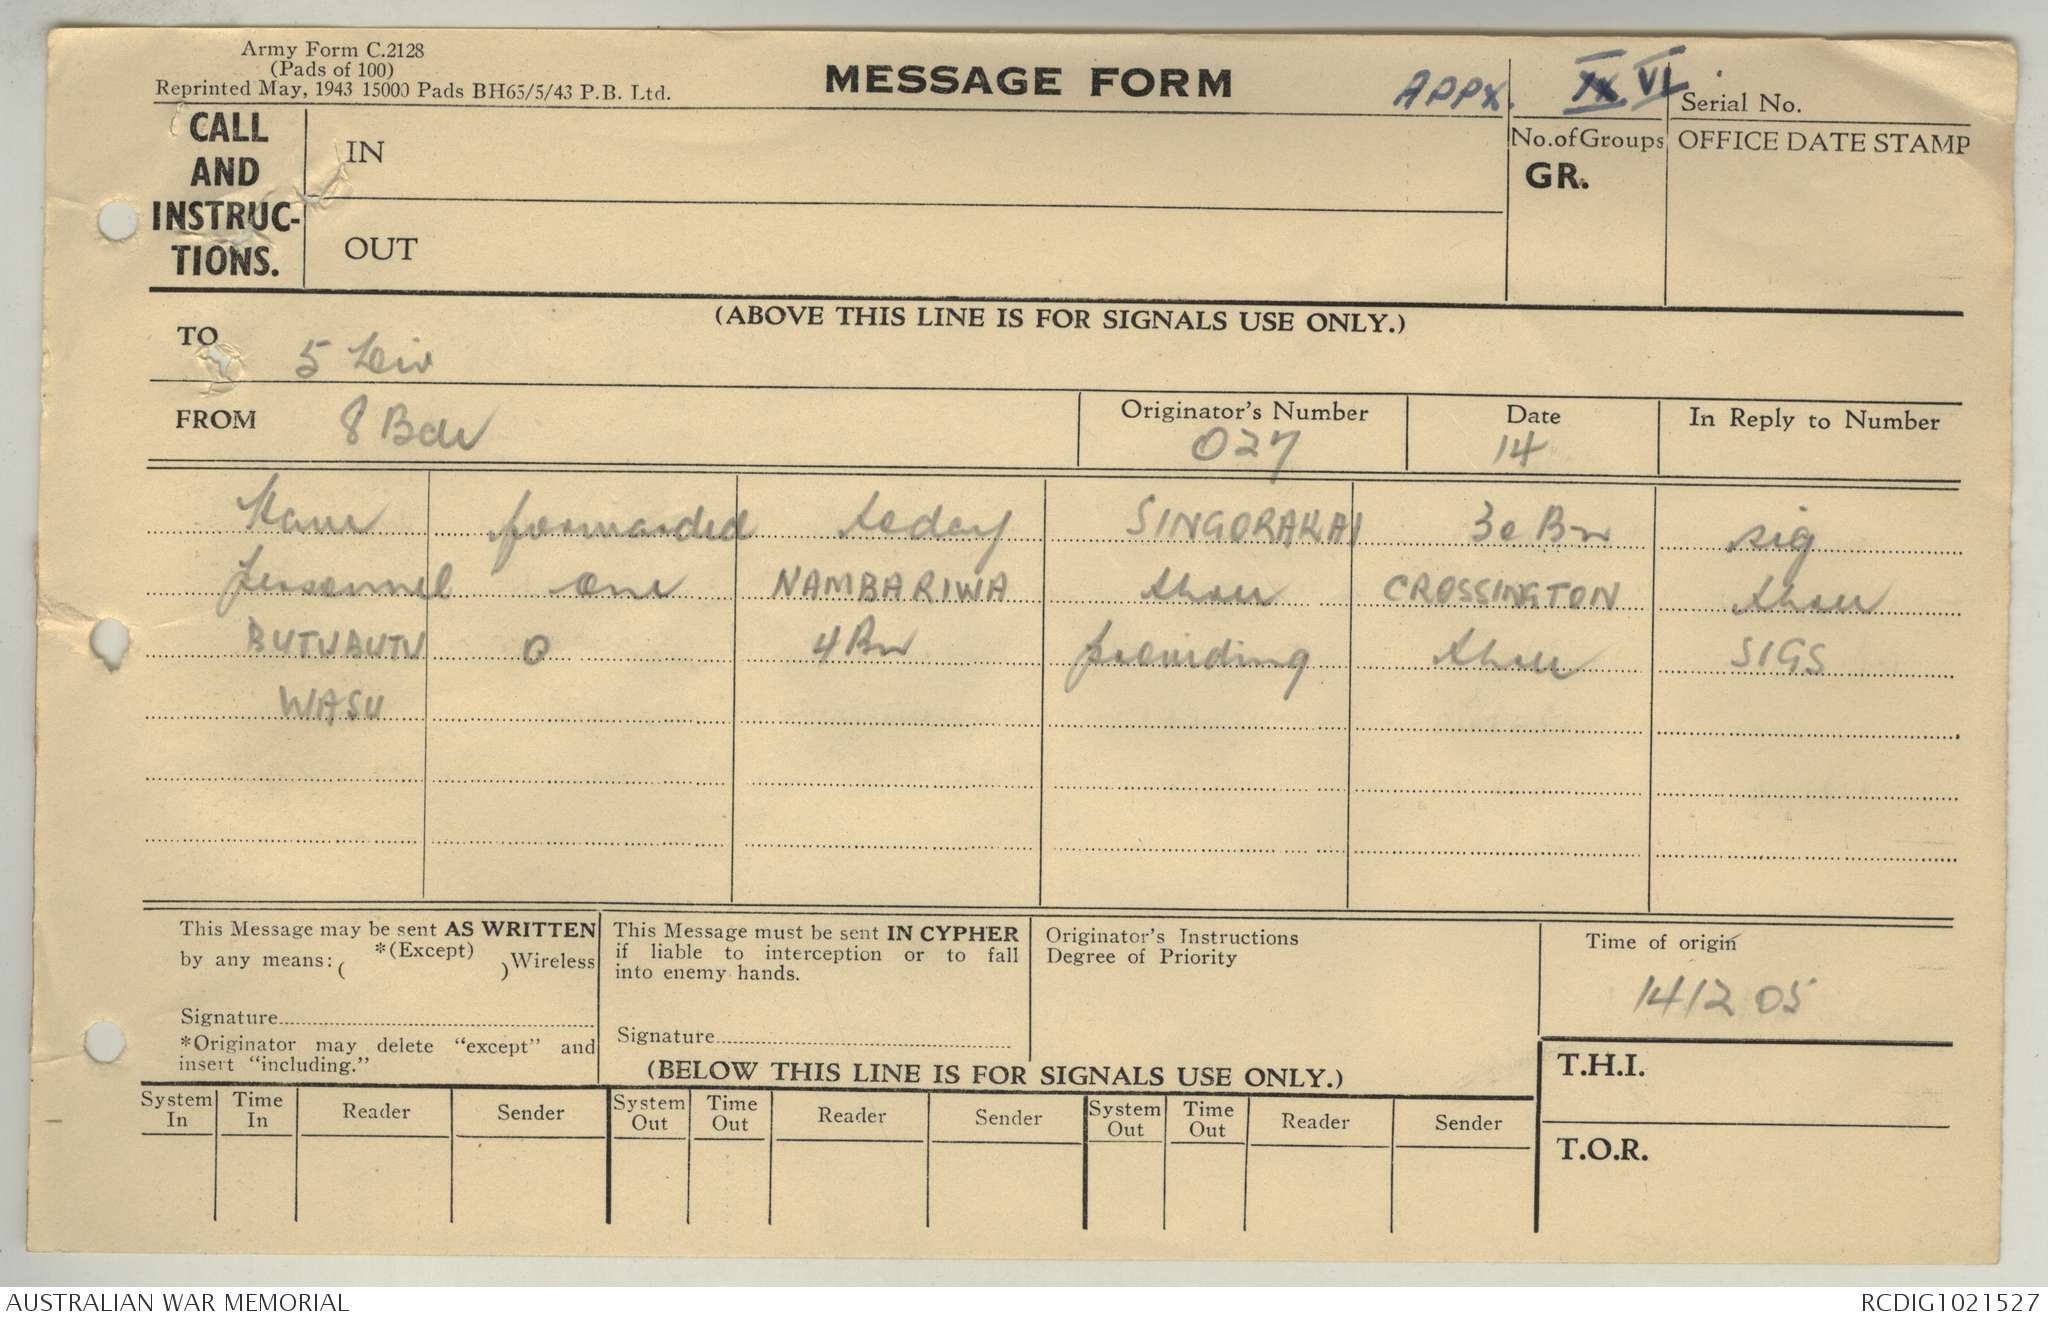 Army Form C.2128
(Pads of 100)
Reprinted May, 1943 15000 Pads BH65/5/43 P.B. Ltd.
MESSAGE FORM
APPX. VI
Serial No.
CALL AND INSTRUC-TIONS.
IN
OUT
No. of Groups
GR.
OFFICE DATE STAMP
(ABOVE THIS LINE IS FOR SIGNALS USE ONLY.)
TO 5 Div
FROM 8 Bde
Originator's Number 027
Date 14
In Reply to Number
Have forwarded today SINGORAKAI 30 Bn sig
personnel one NAMBARIWA three CROSSINGTON three
BUTUBUTU O 4 Bn providing three SIGS
WASU
This Message may be sent AS WRITTEN
by any means: ( *(Except) ) Wireless
Signature
*Originator may delete "except" and
insert "including."
This Message must be sent IN CYPHER
if liable to interception or to fall
into enemy hands.
Signature
Originator's Instructions
Degree of Priority
Time of origin
141205
(BELOW THIS LINE IS FOR SIGNALS USE ONLY.)
T.H.I.
T.O.R.
System In Time In Reader Sender System Out Time Out Reader Sender System Out Time Out Reader Sender
AUSTRALIAN WAR MEMORIAL
RCDIG1021527